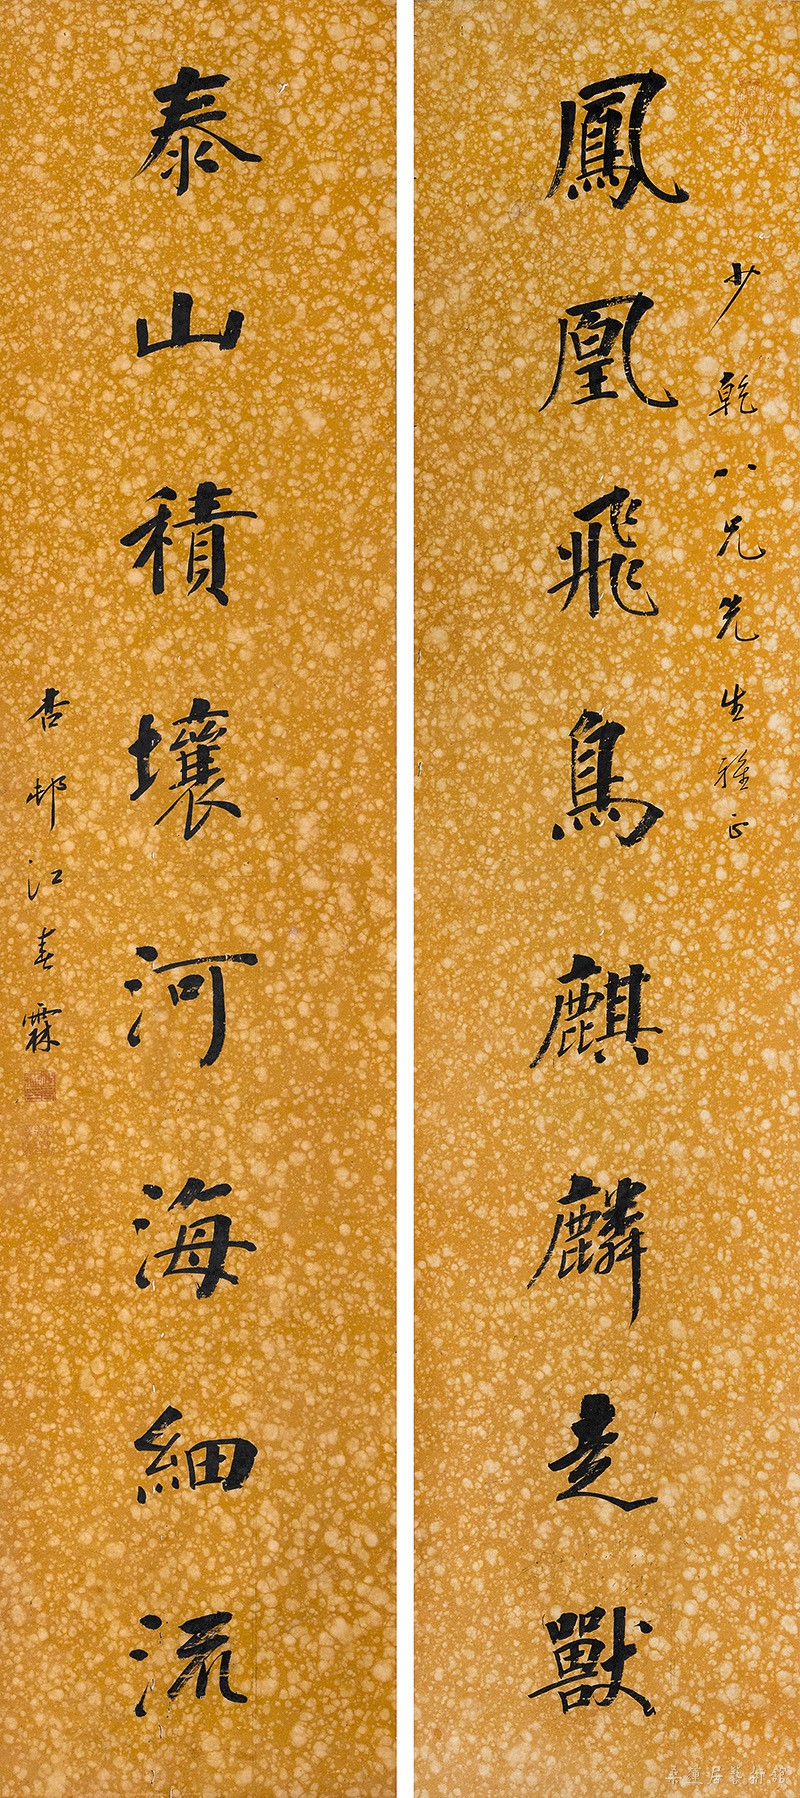 少乾八兄先生雅正
鳳凰飛鳥麒麟走獸
泰山積壤河海細流
杏邨江春霖